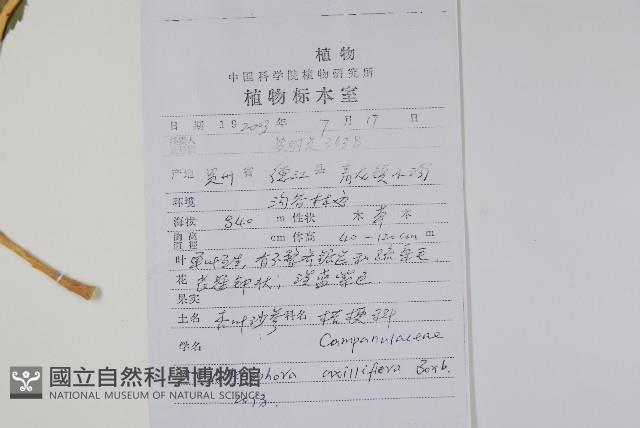 植物
中国科学院植物研究所
植物标本室
日期 19 2003 年 7 月 17 日
采集人 3638
产地 贵州 省 德江 县 青龙镇水沟
环境 沟谷林旁
海拔 840 m 性状 木 草 本
胸高直径 cm 体高 40-120cm m
叶 单叶互生,有不整齐锯齿和疏柔毛.
花 花冠钟状,淡蓝紫色
果实
土名 杏叶沙参 科名 桔梗科
学名 Campanulaceae
phora axilliflora Borb.
國立自然科學博物館
NATIONAL MUSEUM OF NATURAL SCIENCE